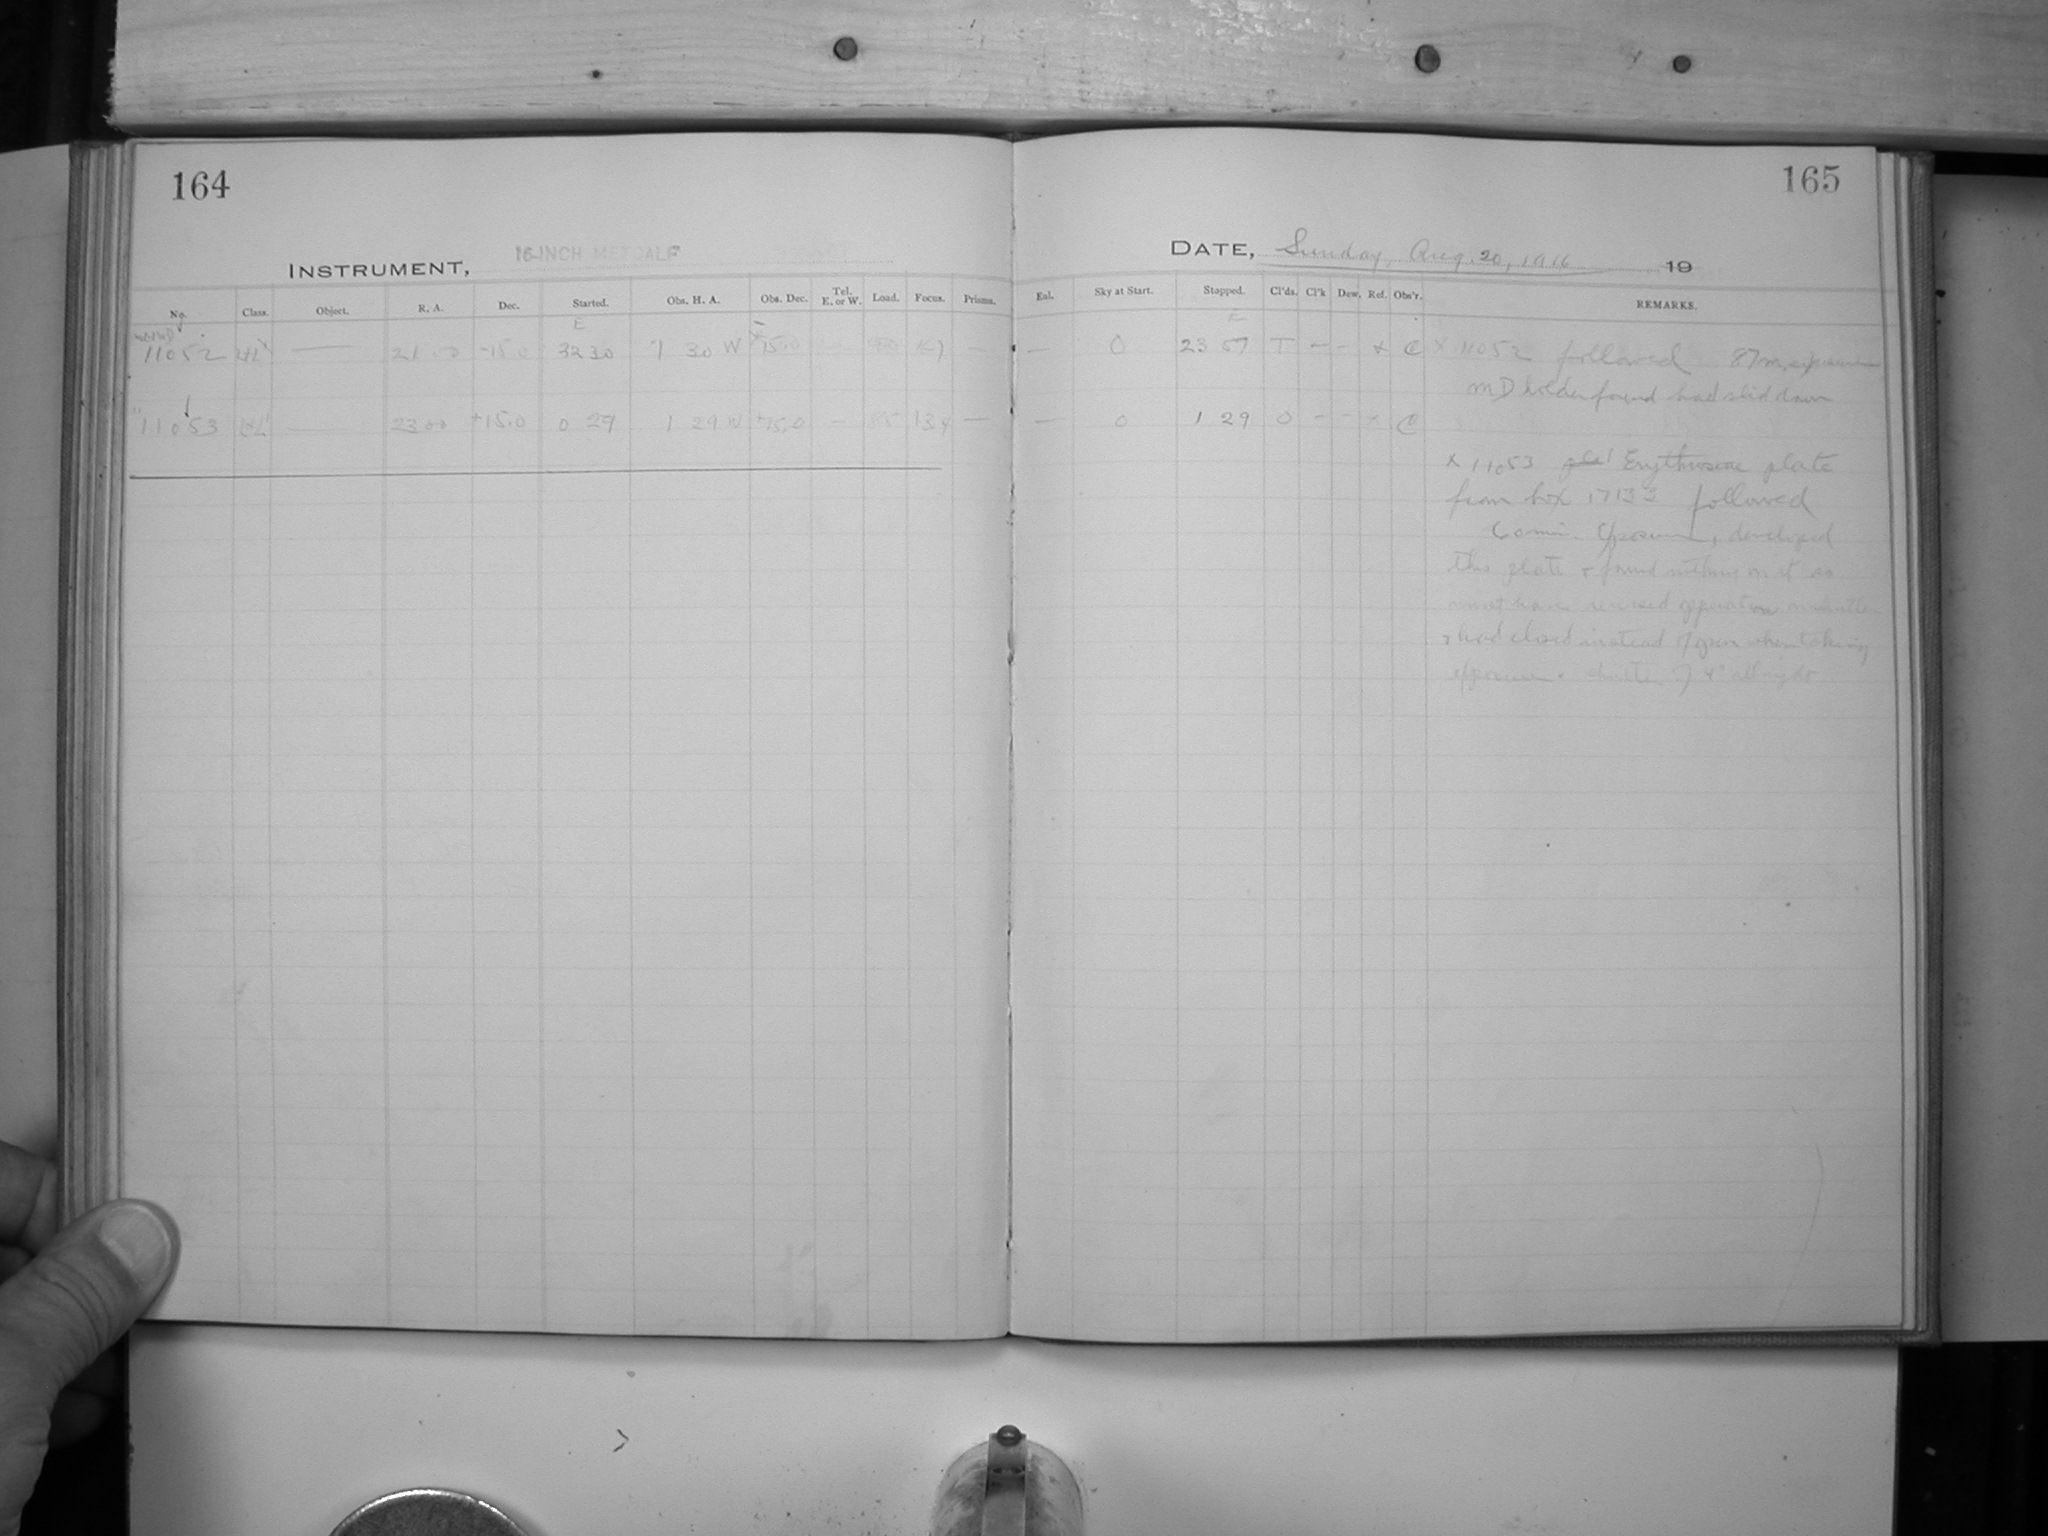 164
165
16-INCH METCALF
INSTRUMENT,
DATE, Sunday, Aug. 20, 1916 19
No. Class. Object. R. A. Dec. Started. Obs. H. A. Obs. Dec. Tel. E. or W. Load. Focus. Prisms. Eal. Sky at Start. Stopped. Cl'ds. Cl'k Dew. Ref. Obs'r. REMARKS.
E E
11052 — 21 00 -15.0 3230 1 30 W 15.0 — — — 0 23 57 T - - x C x 11052 followed 87m. exposure
MD holder found had slid down
11053 — 23 00 +15.0 0 29 1 29 W +15.0 — 134 — — 0 1 29 0 - - x C
x 11053 Erythrosine plate
from box 17133 followed
60 min. Exposure, developed
this plate + found nothing on it so
must have reversed operation on shutter
+ had closed instead of open when taking
exposure. shutter of 4" all right